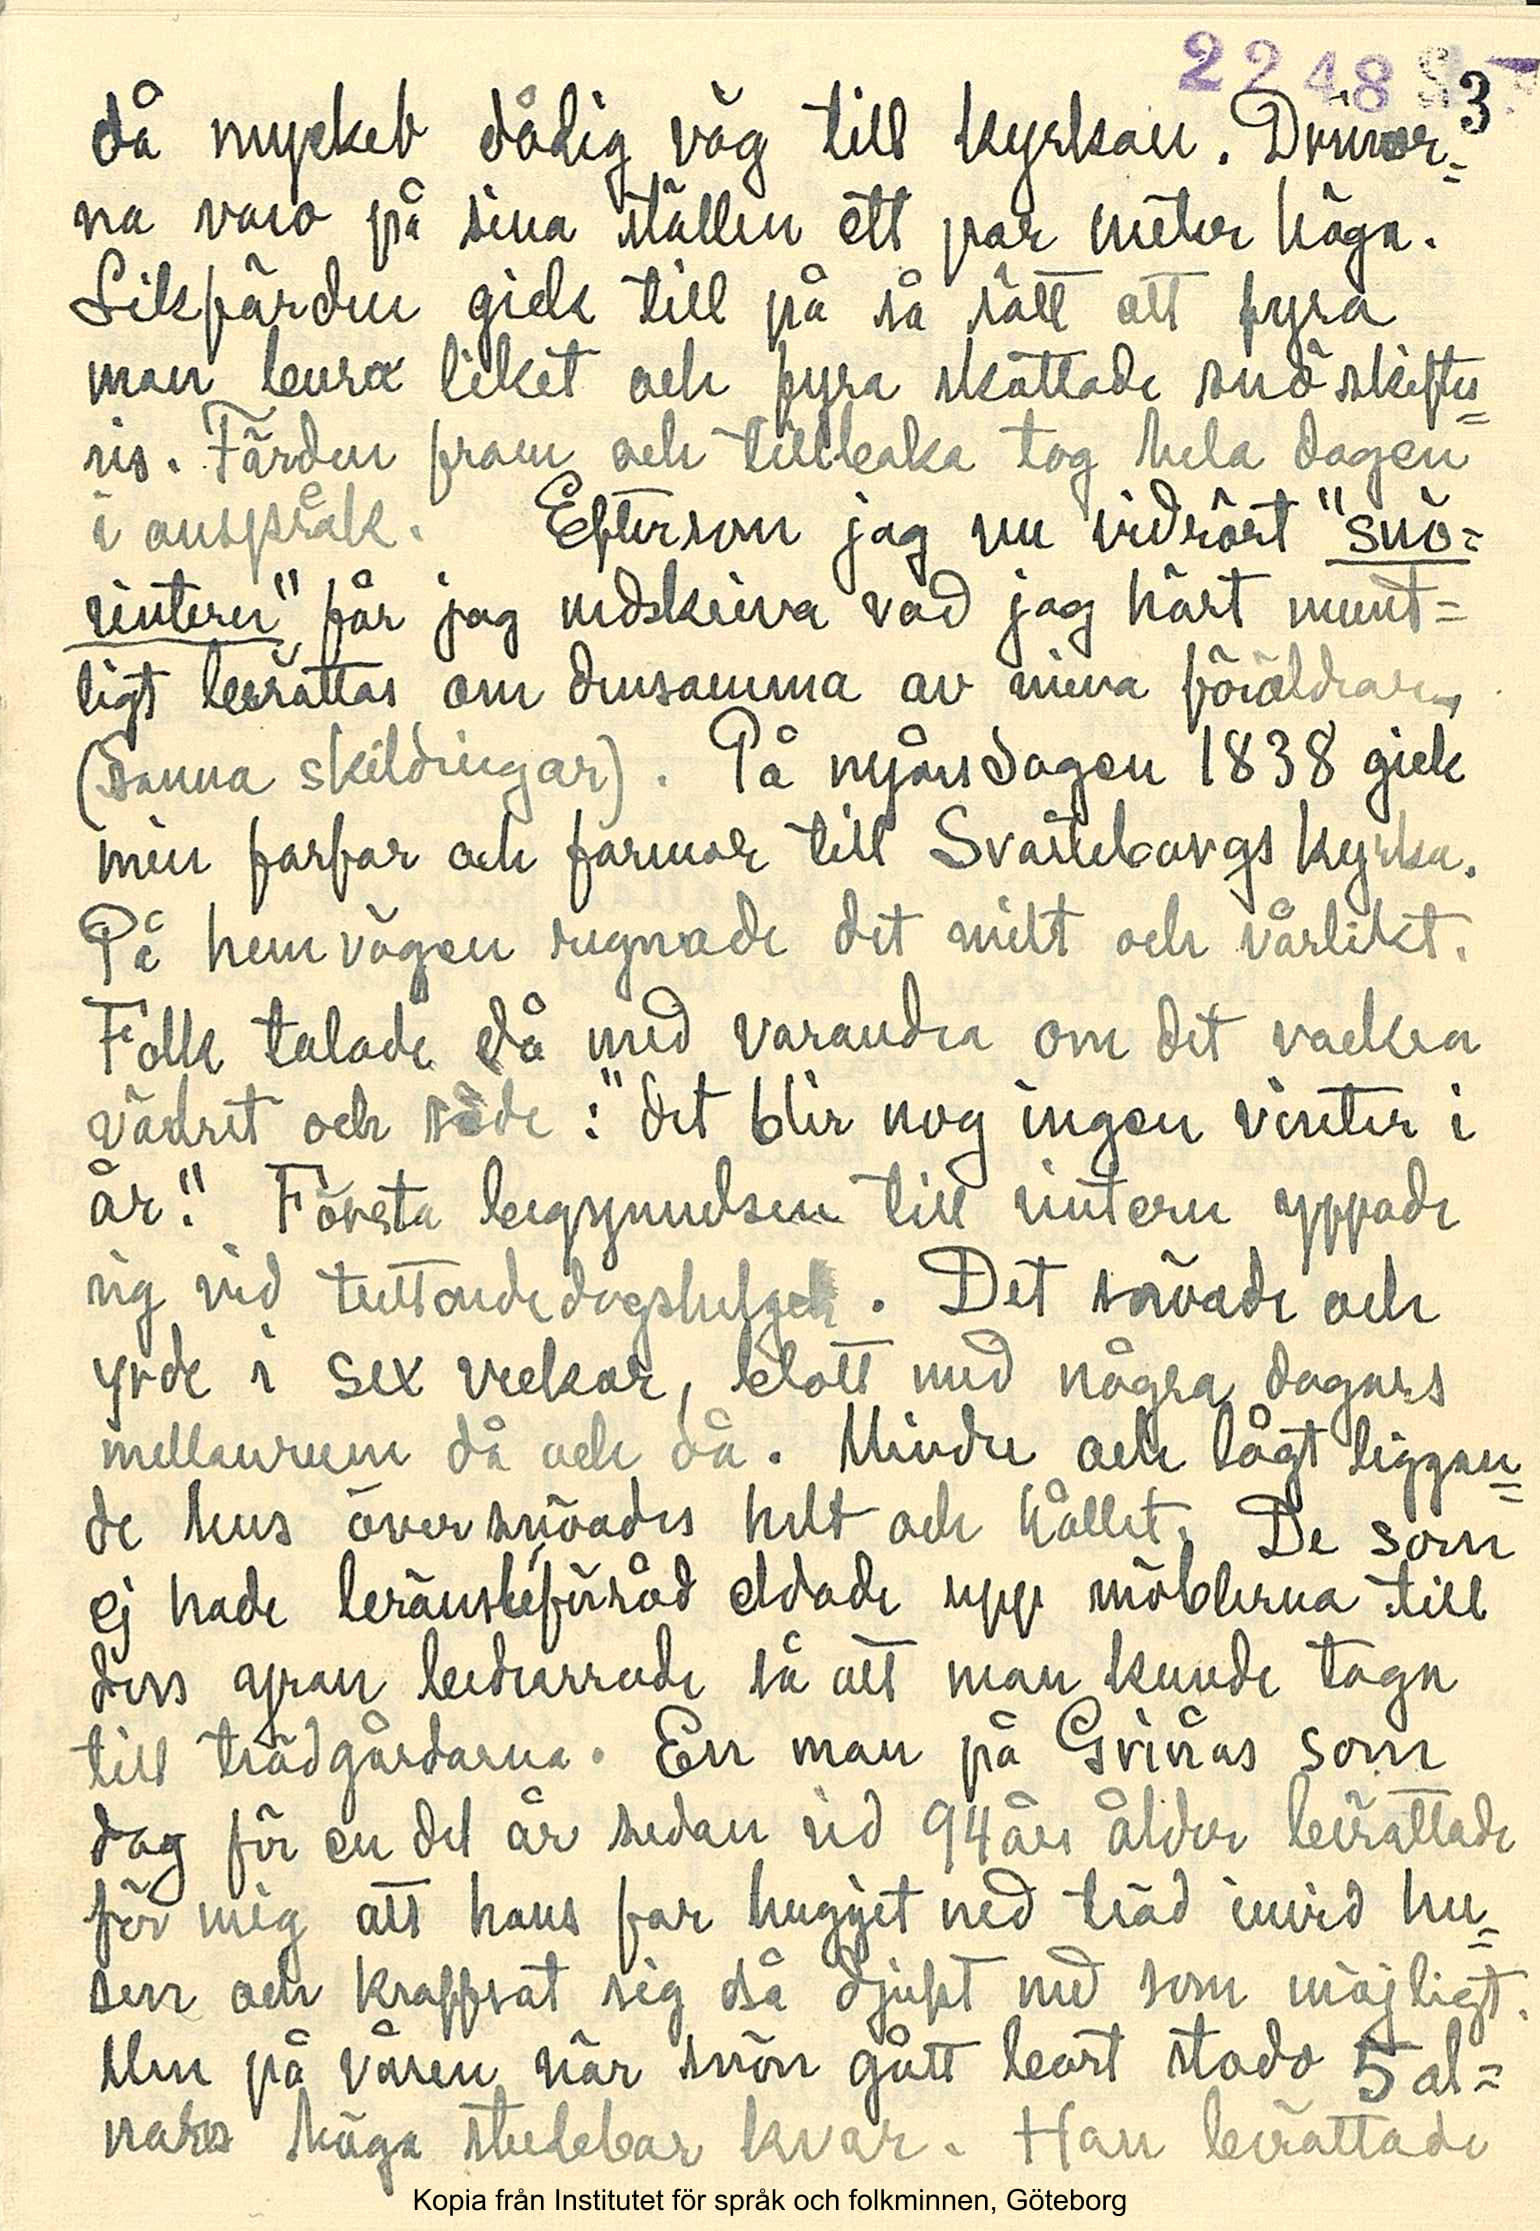 2248
3
då mycket dålig väg till kyrkan. Drivor=
na voro på sina ställen ett par meter höga.
Likfärden gick till på så sätt att fyra
man buro liket och fyra skottade snö skiftes=
vis. Färden fram och tillbaka tog hela dagen
i anspråk. Eftersom jag nu vidrört "snö=
vintern" får jag nedskriva vad jag hört munt=
ligt berättas om densamma av mina föräldrar,
(sanna skildringar). På nyårsdagen 1838 gick
min farfar och farmor till Svarteborgs kyrka.
På hemvägen regnade det milt och vårlikt.
Folk talade då med varandra om det vackra
vädret och sade: "det blir nog ingen vinter i
år." Första begynnelsen till vintern yppade
sig vid trettondedagshelgen. Det snöade och
yrde i sex veckor, blott med några dagars
mellanrum då och då. Mindre och lågt liggan=
de hus översnöades helt och hållet. De som
ej hade bränsleförråd eldade upp möblerna till
dess yran bedarrade så att man kunde taga
till trädgårdarna. En man på Grinås som
dog för en del år sedan vid 94 års ålder berättade
för mig att hans far hugget ned träd invid hu=
sen och kraffsat sig så djupt ned som möjligt.
Men på våren när snön gått bort stodo 5 al=
nars höga stubbar kvar. Han berättade
Kopia från Institutet för språk och folkminnen, Göteborg